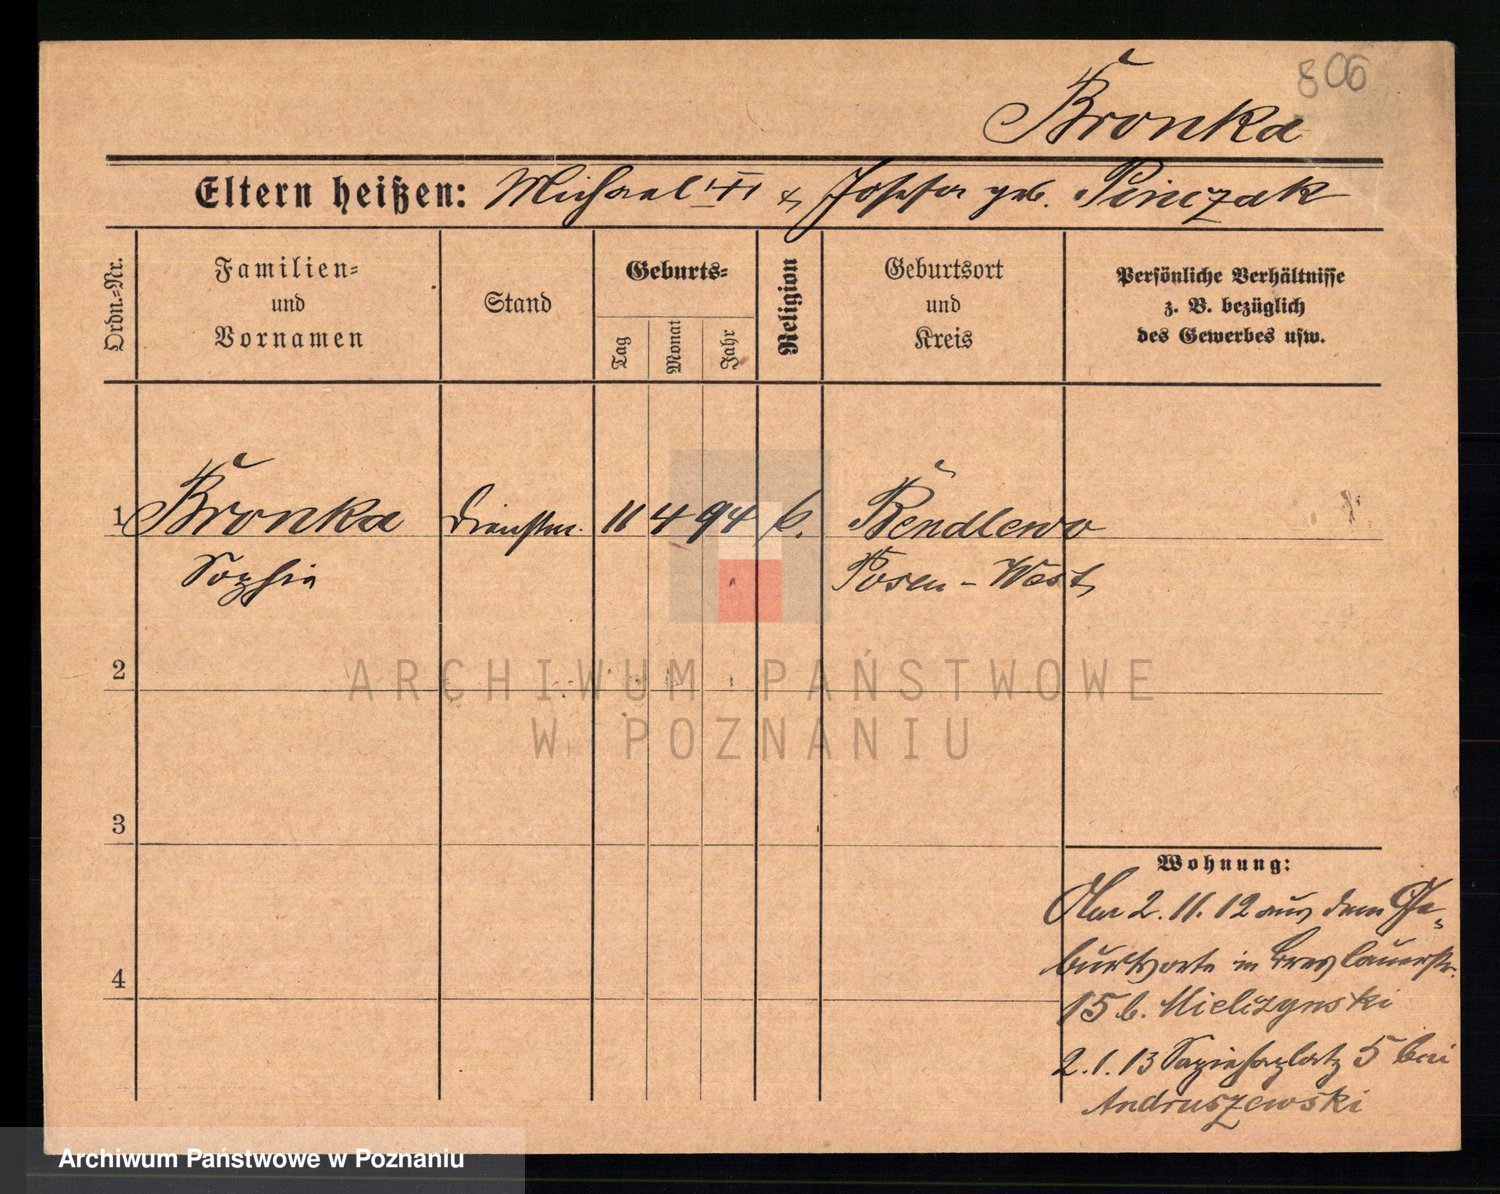 806
Bronka
Eltern heißen: Michael & Josefa geb. Pinczak
Ordn.-Nr.
Familien- und Vornamen
Stand
Geburts-
Tag
Monat
Jahr
Religion
Geburtsort und Kreis
Persönliche Verhältnisse
z. B. bezüglich
des Gewerbes usw.
1 Bronka Dienstm. 11 4 94 k. Bendlewo
Sophie Posen - West
2
3
4
Wohnung:
2. 11. 12 aus dem Ge-
burtsorte in Breslauerstr.
15 b. Mielczynski
2. 1. 13 Sapiehaplatz 5 bei
Andruszewski
ARCHIWUM PAŃSTWOWE
W POZNANIU
Archiwum Państwowe w Poznaniu